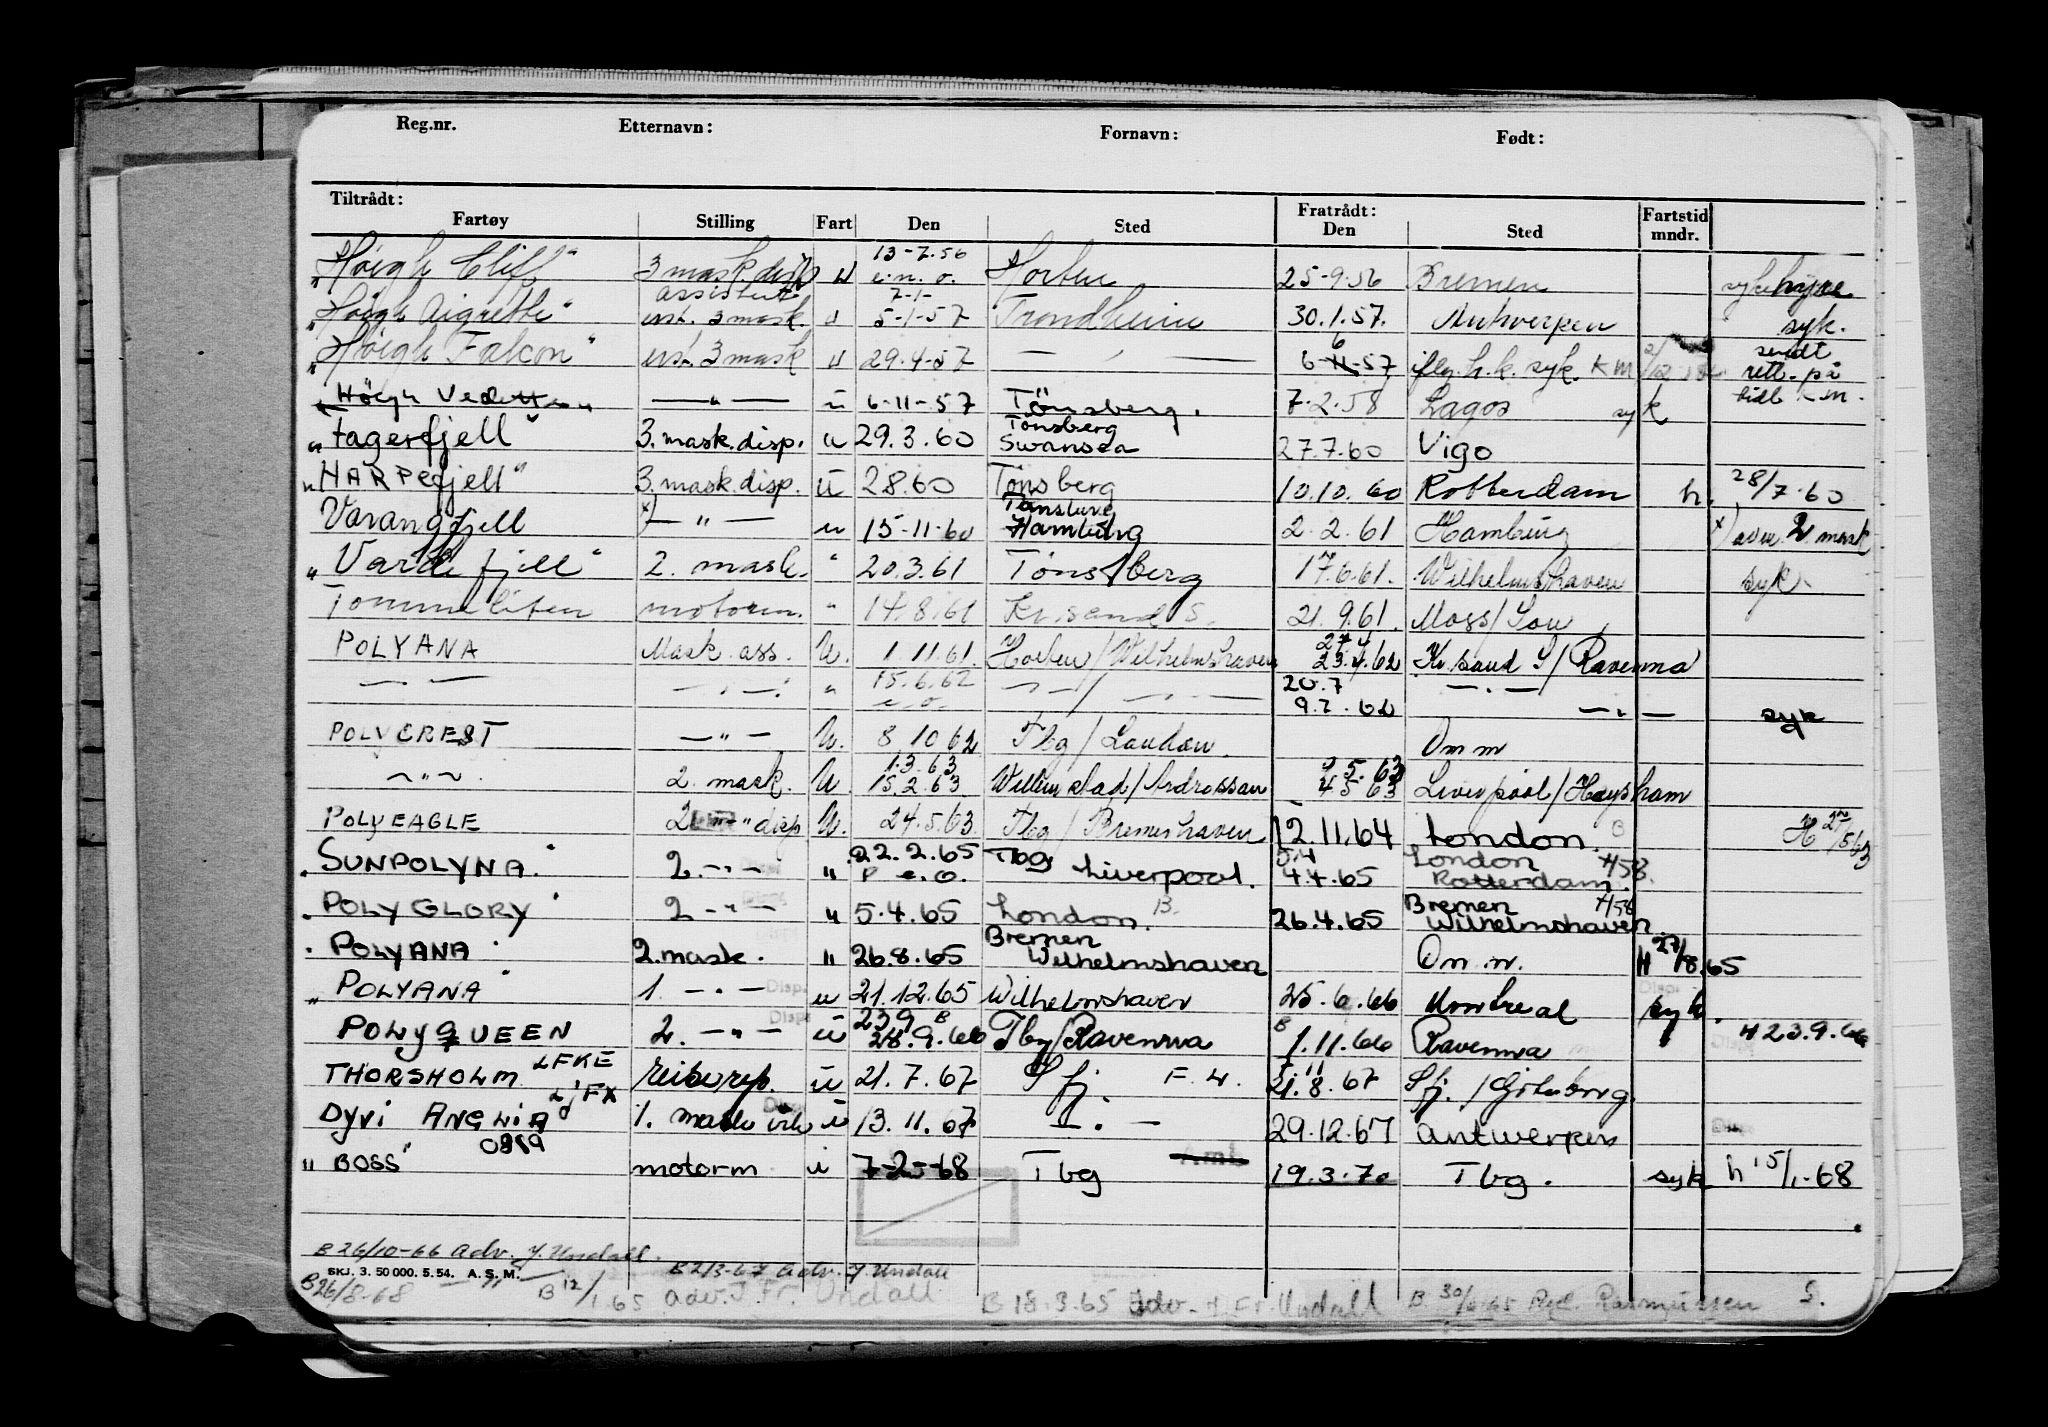 Reg.nr. Etternavn: Fornavn: Født:
Tiltrådt: Fratrådt: Fartstid
Fartøy Stilling Fart Den Sted Den Sted mndr.
13-7.56
"Höegh Cliff" 3 mask. disp u e.n.o. Horten 25-9.56 Bremen sykehyre
assistent 7-1-
"Höegh Aigrette" ust. 3 mask. u 5-1-57 Trondheim 30.1.57. Antwerpen syk.
"Höegh Falcon" ust. 3 mask u 29.4.57 — " — 6-11-57 iflg. h.k. syk. KM sendt
rett. på
"Höegh Vedette" — " — u 6-11-57 Tönsberg. 7.2.58 Lagos syk tidl. KM.
Tönsberg
"Fagerfjell" 3. mask. disp. u 29.3.60 Swansea 27.7.60 Vigo
"HARPefjell" 3. mask. disp. u 2.8.60 Tönsberg 10.10.60 Rotterdam h. 28/7.60
Varangfjell x) — " — u 15-11-60 Hamburg 2.2.61 Hamburg x) avm. 2 mask
"Vardefjell" 2. mask. " 20.3.61 Tönsberg 17.6.61. Wilhelmshaven syk.
Tommeliten motorm. " 14.8.61 Kr.sand S. 21.9.61. Moss/Sou
27.4
POLYANA Mask. ass. U. 1.11.61. Horten/Wilhelmshaven 23.4.62 Kr.sand S/Ravenna
— " — — " — " 15.6.62 — " —/ — " — 20.7
9.7.62 — " — — " — syk
POLYCREST — " — U. 8.10 62 Tbg/London. Om m
1.3.63 5.63
— " — 2. mask. U. 15.2.63 Willemstad/Ardrossan 4 5 63 Liverpool/Heysham
POLYEAGLE 2. — " — disp U. 24.5.63 Tbg/Bremerhaven 12.11.64 London. B H 27/5 63
22.2.65 Tbg 5.4 London H58.
"SUNPOLYNA" 2. — " — " P e.o. Liverpool. 4.4.65 Rotterdam.
"POLYGLORY" 2 — " — " 5.4.65 London. B. 26.4.65 Bremen H58
Wilhelmshaven.
Bremen
"POLYANA" 2. mask. " 26.8.65 Wilhelmshaven Om. m. H 27/8.65
"POLYANA" 1. — " — u 21.12.65 Wilhelmshaven 25.6.66 Montreal syk.
23 9 B B
POLYQUEEN 2. — " — u 28.9.66 Tbg/Ravenna 1.11.66 Ravenna H 23.9.66
THORSHOLM LFKE reiserep. u 21.7.67 Sfj. F.H. 21.8.67 Sfj./Göteborg.
DYVI ANGLIA LJFX 1. mask vik u 13.11.67 — " — 29.12.67 Antwerpen
"BOSS" motorm u 7-2-68 Tbg 19.3.70 Tbg. syk h 15/1-68
B 26/10-66 Adv. J. Undall.
SKJ. 3. 50 000. 5. 54. A. S. M. B 2/3-67 Adv. J. Undall
B 26/8-68 — " — B 12/1.65 adv. J. Fr. Undall B 18.3.65 adv. J. Fr. Undall B. Rasmussen S.